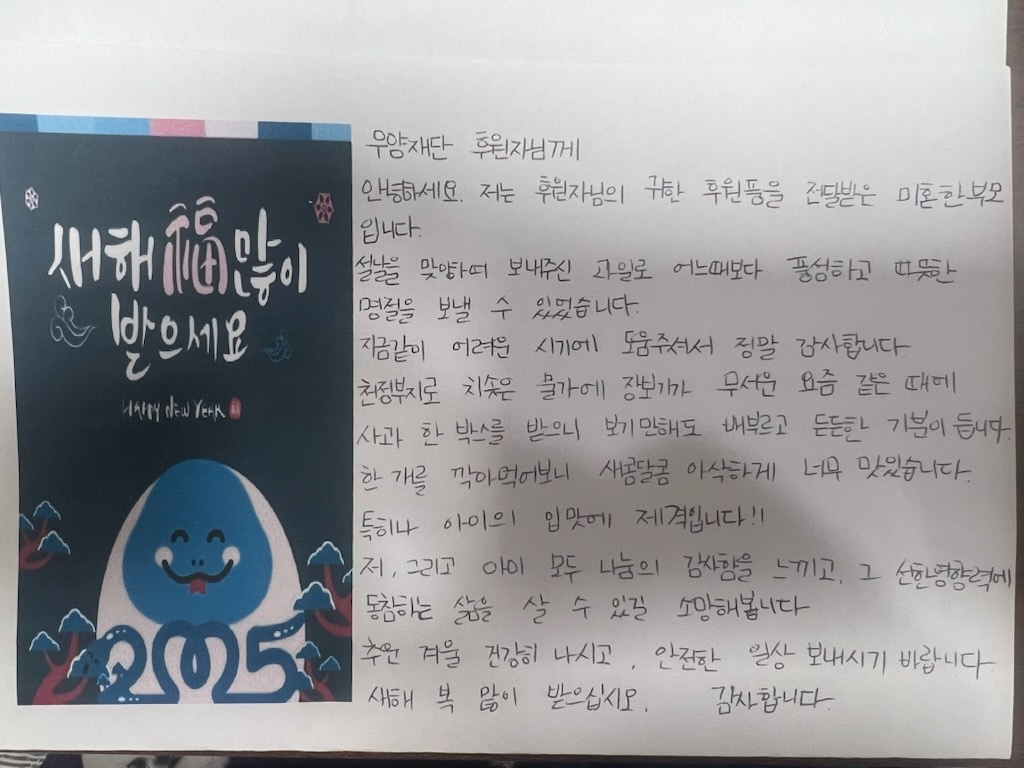 새해 福 많이
받으세요
HAPPY NEW YEAR
2025
우양재단 후원자님께
안녕하세요. 저는 후원자님의 귀한 후원품을 전달받은 미혼한부모
입니다.
설날을 맞이하여 보내주신 과일로 어느때보다 풍성하고 따뜻한
명절을 보낼 수 있었습니다.
지금같이 어려운 시기에 도움주셔서 정말 감사합니다
천정부지로 치솟은 물가에 장보기가 무서운 요즘 같은 때에
사과 한 박스를 받으니 보기만해도 배부르고 든든한 기분이 듭니다.
한 개를 깍아먹어보니 새콤달콤 아삭하게 너무 맛있습니다.
특히나 아이의 입맛에 제격입니다!!
저, 그리고 아이 모두 나눔의 감사함을 느끼고, 그 선한영향력에
동참하는 삶을 살 수 있길 소망해봅니다
추운 겨울 건강히 나시고, 안전한 일상 보내시기 바랍니다.
새해 복 많이 받으십시오. 감사합니다.